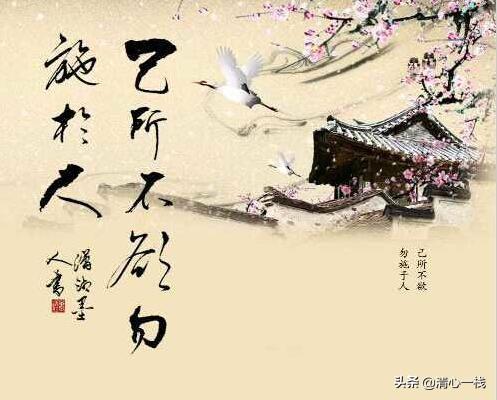 己所不欲勿
施於人
瀟湘墨
人書
己所不欲
勿施于人
头条 @清心一栈